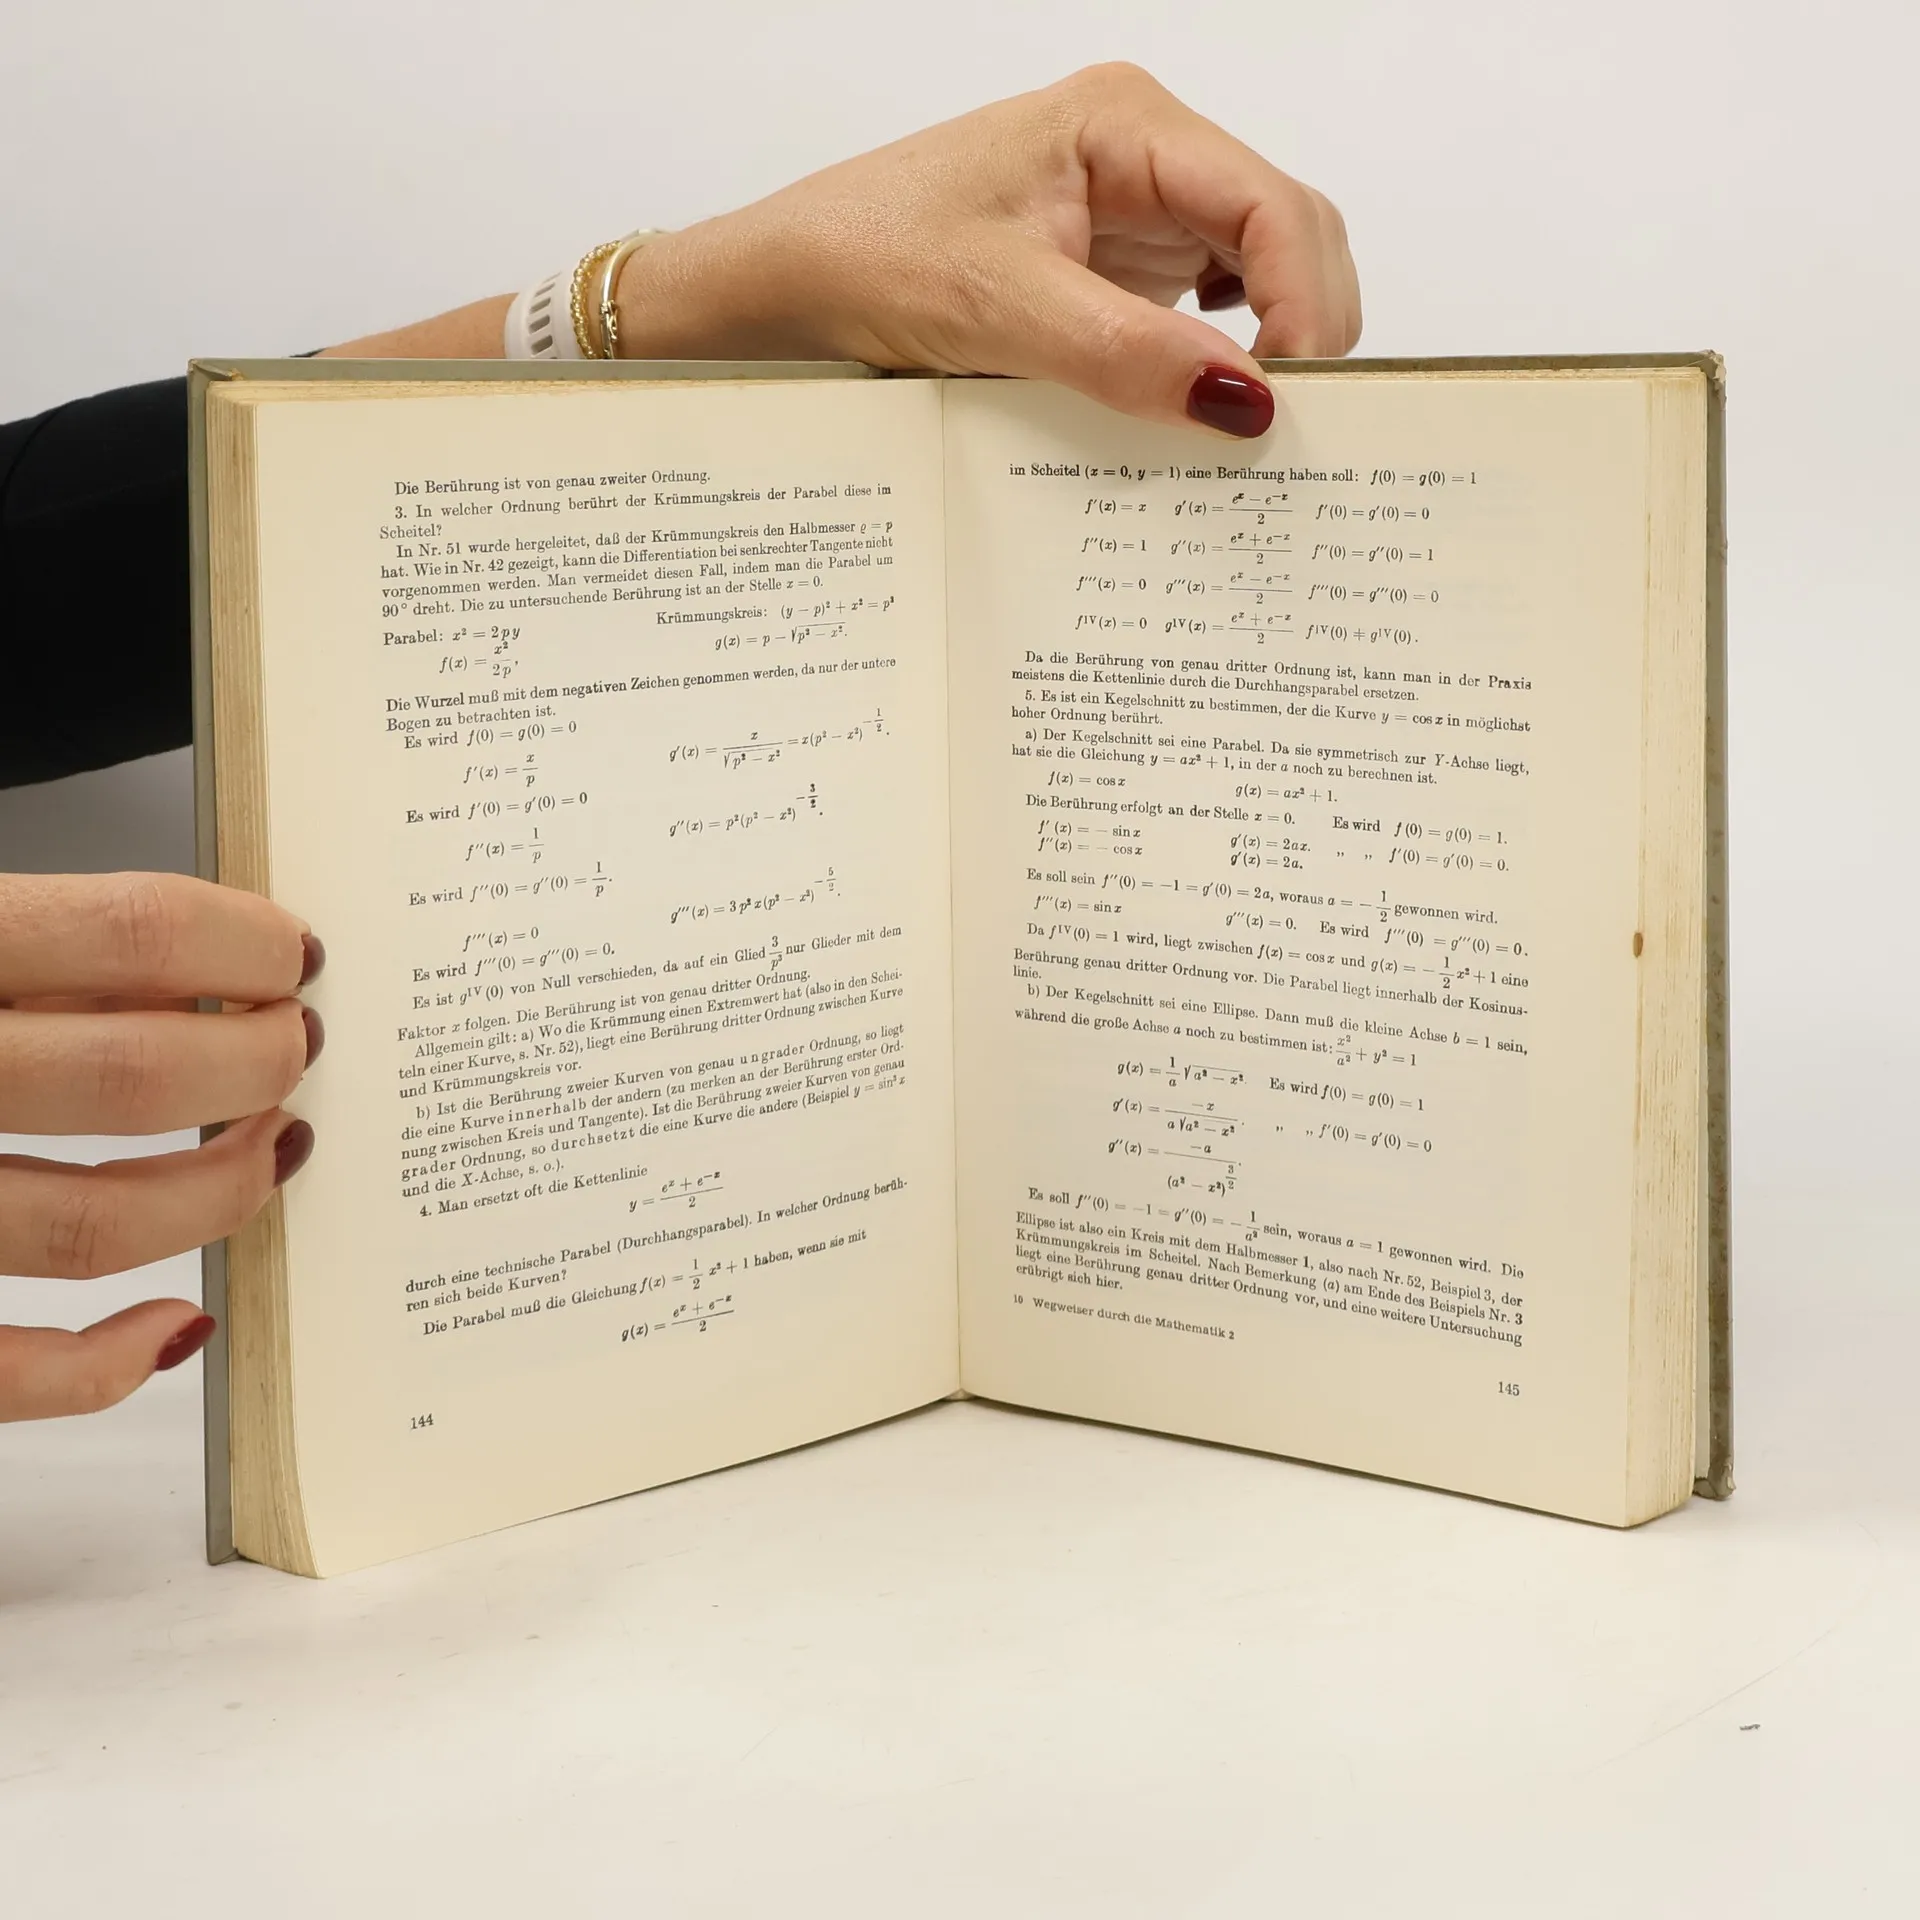 Die Berührung ist von genau zweiter Ordnung.
3. In welcher Ordnung berührt der Krümmungskreis der Parabel diese im
Scheitel?
In Nr. 51 wurde hergeleitet, daß der Krümmungskreis den Halbmesser ϱ = p
hat. Wie in Nr. 42 gezeigt, kann die Differentiation bei senkrechter Tangente nicht
vorgenommen werden. Man vermeidet diesen Fall, indem man die Parabel um
90° dreht. Die zu untersuchende Berührung ist an der Stelle x = 0.
Parabel: x² = 2py Krümmungskreis: (y − p)² + x² = p²
f(x) = x²/2p, g(x) = p − √(p² − x²).
Die Wurzel muß mit dem negativen Zeichen genommen werden, da nur der untere
Bogen zu betrachten ist.
Es wird f(0) = g(0) = 0
f′(x) = x/p g′(x) = x/√(p² − x²) = x(p² − x²)^(−1/2).
Es wird f′(0) = g′(0) = 0
f″(x) = 1/p g″(x) = p²(p² − x²)^(−3/2).
Es wird f″(0) = g″(0) = 1/p.
f‴(x) = 0 g‴(x) = 3p²x(p² − x²)^(−5/2).
Es wird f‴(0) = g‴(0) = 0.
Es ist gIV(0) von Null verschieden, da auf ein Glied 3/p³ nur Glieder mit dem
Faktor x folgen. Die Berührung ist von genau dritter Ordnung.
Allgemein gilt: a) Wo die Krümmung einen Extremwert hat (also in den Schei-
teln einer Kurve, s. Nr. 52), liegt eine Berührung dritter Ordnung zwischen Kurve
und Krümmungskreis vor.
b) Ist die Berührung zweier Kurven von genau ungrader Ordnung, so liegt
die eine Kurve innerhalb der andern (zu merken an der Berührung erster Ord-
nung zwischen Kreis und Tangente). Ist die Berührung zweier Kurven von genau
grader Ordnung, so durchsetzt die eine Kurve die andere (Beispiel y = sin³ x
und die X-Achse, s. o.).
4. Man ersetzt oft die Kettenlinie
y = (e^x + e^−x)/2
durch eine technische Parabel (Durchhangsparabel). In welcher Ordnung berüh-
ren sich beide Kurven?
Die Parabel muß die Gleichung f(x) = 1/2 x² + 1 haben, wenn sie mit
g(x) = (e^x + e^−x)/2
144
im Scheitel (x = 0, y = 1) eine Berührung haben soll: f(0) = g(0) = 1
f′(x) = x g′(x) = (e^x − e^−x)/2 f′(0) = g′(0) = 0
f″(x) = 1 g″(x) = (e^x + e^−x)/2 f″(0) = g″(0) = 1
f‴(x) = 0 g‴(x) = (e^x − e^−x)/2 f‴(0) = g‴(0) = 0
fIV(x) = 0 gIV(x) = (e^x + e^−x)/2 fIV(0) ≠ gIV(0).
Da die Berührung von genau dritter Ordnung ist, kann man in der Praxis
meistens die Kettenlinie durch die Durchhangsparabel ersetzen.
5. Es ist ein Kegelschnitt zu bestimmen, der die Kurve y = cos x in möglichst
hoher Ordnung berührt.
a) Der Kegelschnitt sei eine Parabel. Da sie symmetrisch zur Y-Achse liegt,
hat sie die Gleichung y = ax² + 1, in der a noch zu berechnen ist.
f(x) = cos x g(x) = ax² + 1.
Die Berührung erfolgt an der Stelle x = 0. Es wird f(0) = g(0) = 1.
f′(x) = − sin x g′(x) = 2ax. „ „ f′(0) = g′(0) = 0.
f″(x) = − cos x g′(x) = 2a.
Es soll sein f″(0) = −1 = g′(0) = 2a, woraus a = − 1/2 gewonnen wird.
f‴(x) = sin x g‴(x) = 0. Es wird f‴(0) = g‴(0) = 0.
Da fIV(0) = 1 wird, liegt zwischen f(x) = cos x und g(x) = − 1/2 x² + 1 eine
Berührung genau dritter Ordnung vor. Die Parabel liegt innerhalb der Kosinus-
linie.
b) Der Kegelschnitt sei eine Ellipse. Dann muß die kleine Achse b = 1 sein,
während die große Achse a noch zu bestimmen ist: x²/a² + y² = 1
g(x) = 1/a √(a² − x². Es wird f(0) = g(0) = 1
g′(x) = −x/(a √(a² − x²)). „ „ f′(0) = g′(0) = 0
g″(x) = −a/(a² − x²)^(3/2).
Es soll f″(0) = −1 = g″(0) = − 1/a² sein, woraus a = 1 gewonnen wird. Die
Ellipse ist also ein Kreis mit dem Halbmesser 1, also nach Nr. 52, Beispiel 3, der
Krümmungskreis im Scheitel. Nach Bemerkung (a) am Ende des Beispiels Nr. 3
liegt eine Berührung genau dritter Ordnung vor, und eine weitere Untersuchung
erübrigt sich hier.
10 Wegweiser durch die Mathematik 2
145